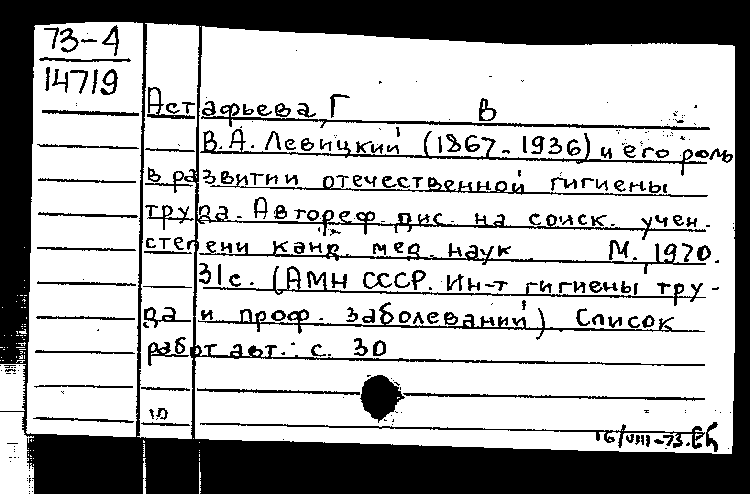 73-4
14719
Астафьева, Г В
В.А. Левицкий (1867-1936) и его роль
в развитии отечественной гигиены
труда. Автореф. дис. на соиск. учен.
степени канд. мед. наук М. 1970.
31с. (АМН СССР. Ин-т гигиены тру-
да и проф. заболеваний). Список
работ авт.: с. 30
10
16/VIII-73.